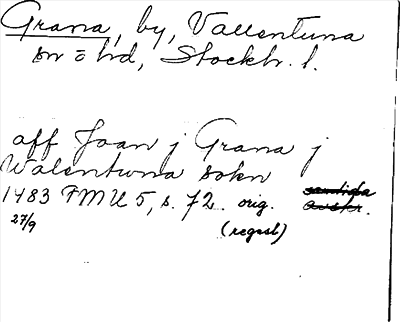 Grana, by, Vallentuna
sn o hd, Stockh. l.
aff Joan j Grana j
Walentuna sokn
1483 FMU 5, s. 72. orig. samtida
27/9 avskr.
(regest)